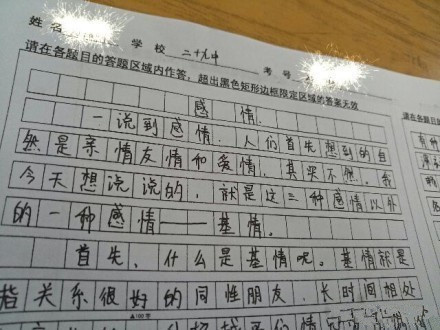 姓名 学校 二十九中 考号
请在各题目的答题区域内作答,超出黑色矩形边框限定区域的答案无效
请在各题目
感情.
一说到感情,人们首先想到的自
然是亲情友情和爱情,其实不然,我
今天想说说的,就是这三种感情以外
的一种感情——基情.
首先,什么是基情呢。基情就是
指关系很好的同性朋友,长时间相处
▲100字